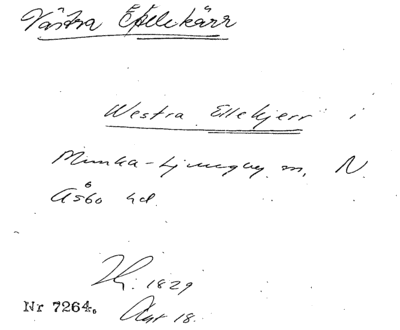 Västra Ellekärr
Westra Ellekjerr i
Munka-Ljungby sn, N.
Åsbo hd.
1829
Nr 7264. Akt 18.